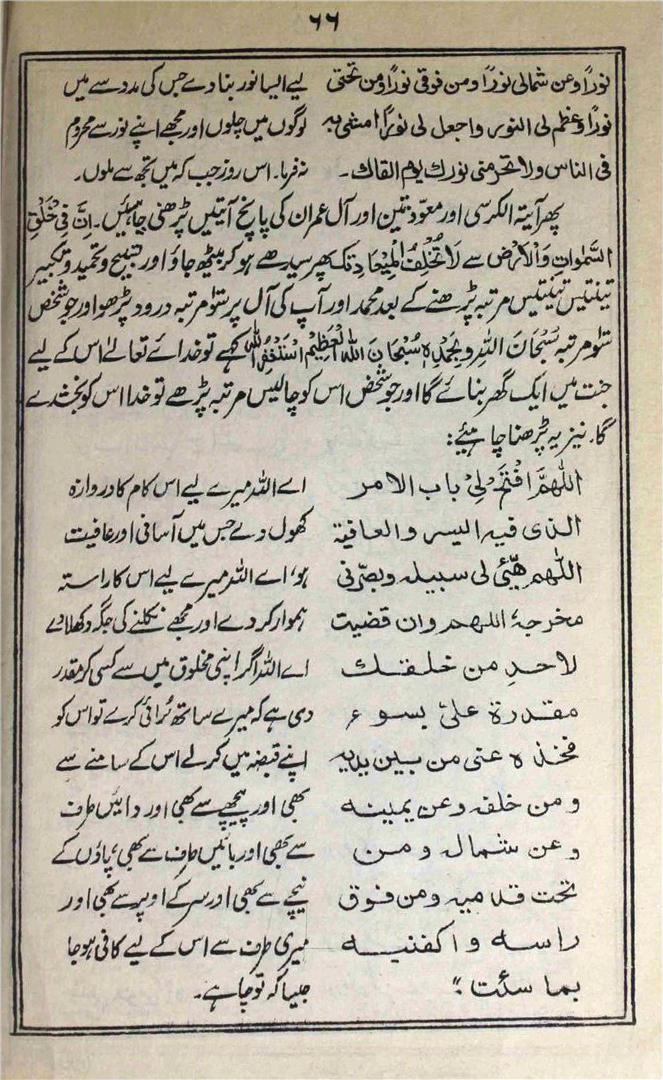 ۶۶
نورًا وعن شمالی نورًا ومن فوقی نورًا ومن تحتی
لیے ایسا نور بنا دے جس کی مدد سے میں
نورًا وعظم لی النور واجعل لی نورًا امشی به
لوگوں میں چلوں اور مجھے اپنے نور سے محروم
فی الناس ولا تحرمنی نورك یوم القاك۔
نہ فرما۔ اس روز جب کہ میں تجھ سے ملوں۔
پھر آیۃ الکرسی اور معوّذتین اور آل عمران کی پانچ آیتیں پڑھنی چاہئیں۔ اِنَّ فِیْ خَلْقِ
السَّمٰوَاتِ وَالْاَرْضِ سے لَا تُخْلِفُ الْمِیْعَادَ تک پھر سیدھے ہو کر بیٹھ جاؤ اور تسبیح وتحمید وتکبیر
تینتیس تینتیس مرتبہ پڑھنے کے بعد محمد اور آپ کی آل پر سو مرتبہ درود پڑھو اور جو شخص
سو مرتبہ سُبْحَانَ اللّٰهِ وَبِحَمْدِہٖ سُبْحَانَ اللّٰهِ الْعَظِیْمِ اَسْتَغْفِرُ اللّٰهَ کہے تو خدائے تعالےٰ اس کے لیے
جنت میں ایک گھر بنائے گا اور جو شخص اس کو چالیس مرتبہ پڑھے تو خدا اس کو بخشدے
گا۔ نیز یہ پڑھنا چاہیئے:
اَللّٰهُمَّ افْتَحْ لِیْ باب الامر
اے اللہ میرے لیے اس کام کا دروازہ
الذی فیه الیسر والعافیة
کھول دے جس میں آسانی اور عافیت
اللّٰهم هیّئی لی سبیله وبصّرنی
ہو، اے اللہ میرے لیے اس کا راستہ
مخرجه اللهم وان قضیت
ہموار کر دے اور مجھے نکلنے کی جگہ دکھلا دے
لاحدٍ من خلقك
اے اللہ اگر اپنی مخلوق میں سے کسی کو مقدر
مقدرة علیّ بسوء
دی ہے کہ میرے ساتھ بُرائی کرے تو اس کو
فخذه عنی من بین یدیه
اپنے قبضہ میں کر لے اس کے سامنے سے
ومن خلفه وعن یمینه
بھی اور پیچھے سے بھی اور دائیں طرف
وعن شماله ومن
سے بھی اور بائیں طرف سے بھی، پاؤں کے
تحت قدمیه ومن فوق
نیچے سے بھی اور سر کے اوپر سے بھی اور
راسه واکفنیه
میری طرف سے اس کے لیے کافی ہو جا
بما سئت :"
جیسا کہ تو چاہے۔